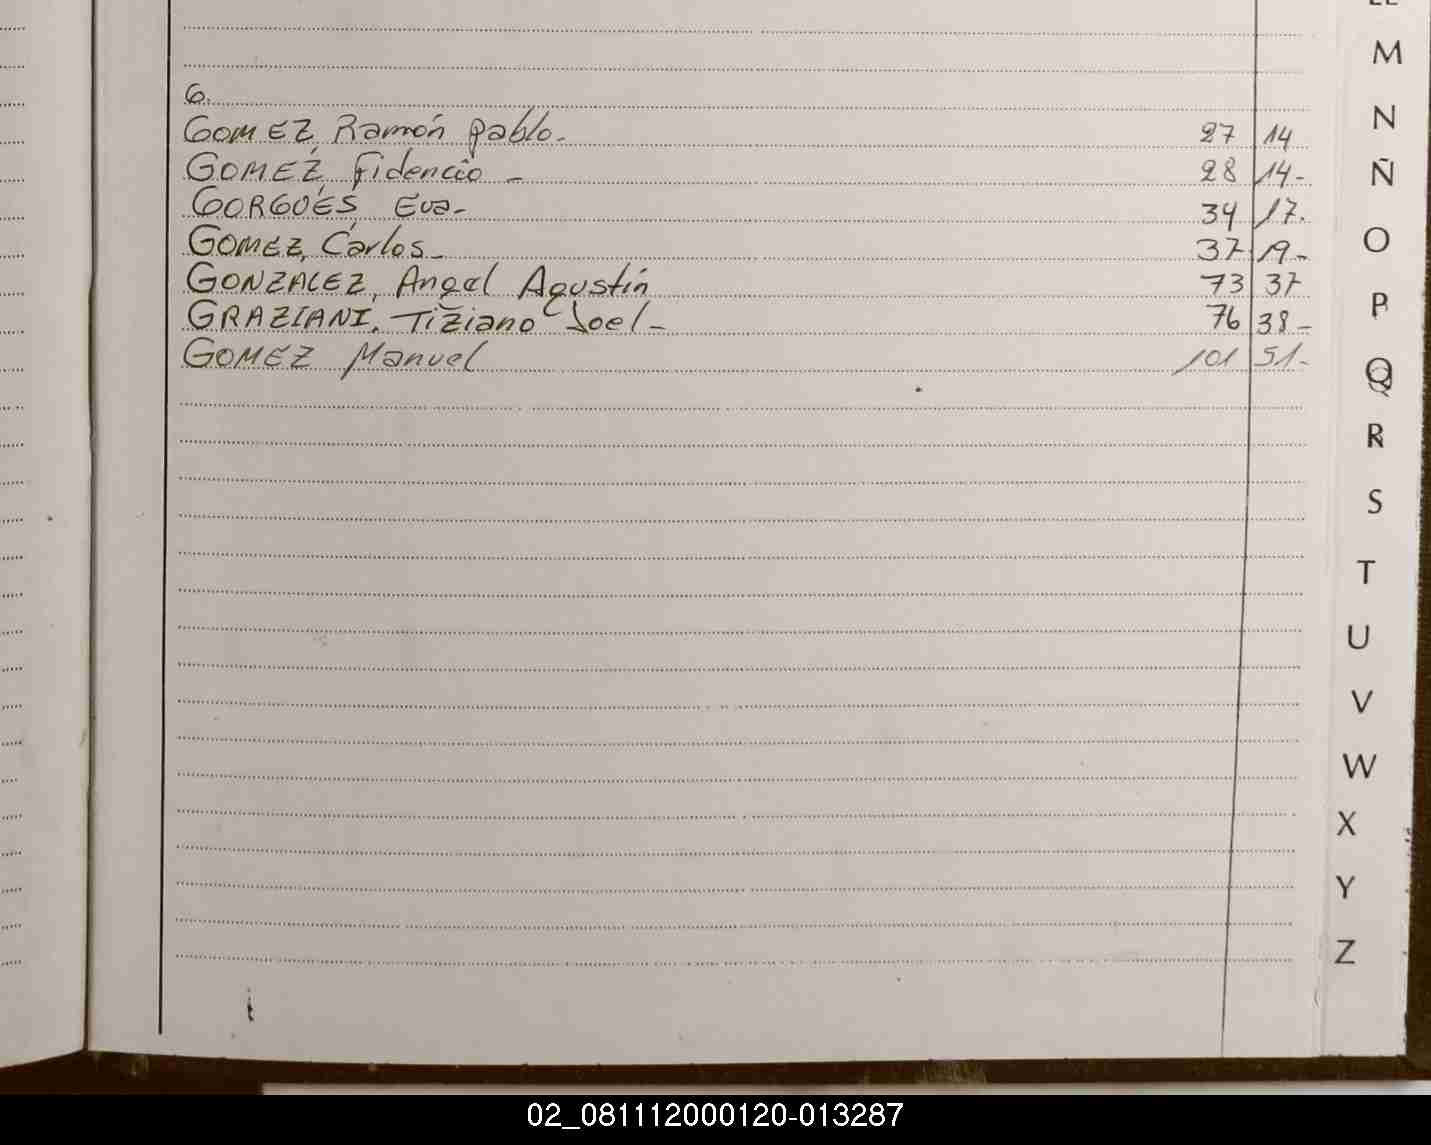 M
N
Ñ
O
P
Q
R
S
T
U
V
W
X
Y
Z
G.
GOMEZ, Ramón Pablo.- 27 14
GOMEZ, Fidencio - 28 14-
GORGUÉS, Eva- 34 17.
GOMEZ, Carlos- 37 19-
GONZALEZ, Angel Agustín 73 37
GRAZIANI, Tiziano Joel- 76 38-
GOMEZ Manuel 101 51-
02_081112000120-013287